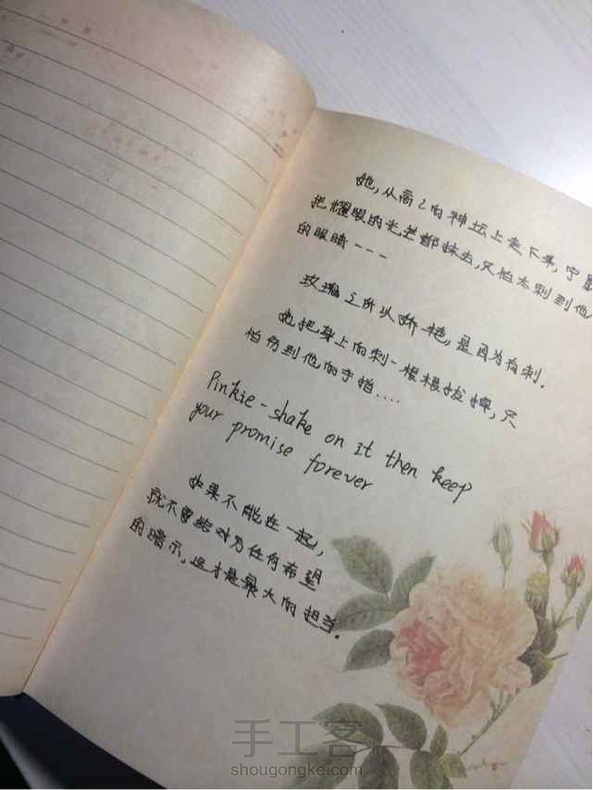 她，从高高的神坛上走下来，宁愿
把耀眼的光芒都抹去，只怕太刺到他
的眼睛---
玫瑰之所以娇艳，是因为有刺.
她把身上的刺一根根拔掉，只
怕伤到他的手指....
Pinkie-shake on it then keep
your promise forever
如果不能在一起，
就不要给对方任何希望
的暗示，这才是最大的担当.
手工客
shougongke.com